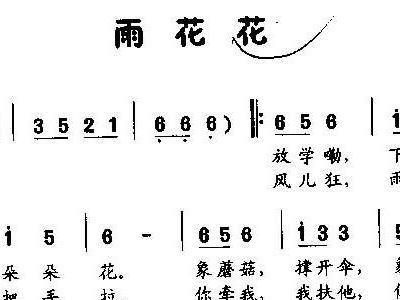 雨花花
3 5 2 1 | 6 6 6 ) ‖: 6 5 6 |
放学嘞,
风儿狂,
1 5 | 6 - | 6 5 6 | 1 3 3 | 5
朵朵花。象蘑菇,撑开伞,
把手拉 你牵我,我扶他,